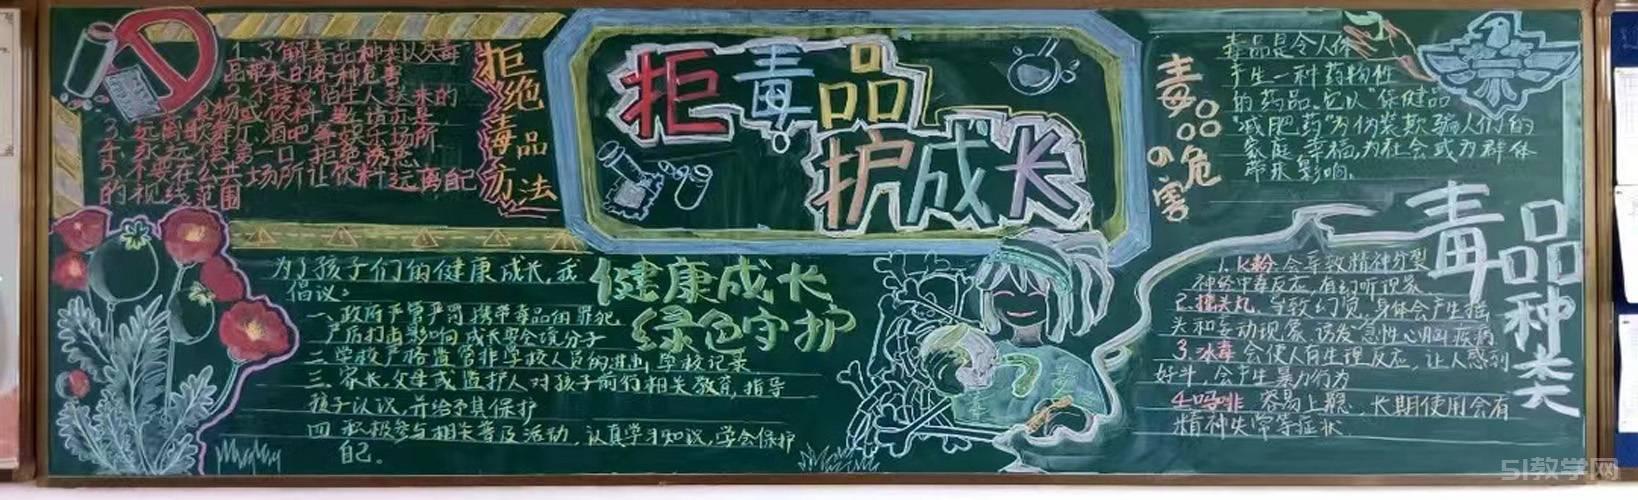 1. 了解毒品种类以及毒
品带来的各种危害
2. 不接受陌生人送来的
食物或饮料
3. 远离歌舞厅、酒吧等娱乐场所
4. 永远拒绝第一口,拒绝诱惑
5. 不要在公共场所让饮料远离自己
的视线范围
拒绝毒品方法
拒毒品
护成长
毒品的危害
毒品是令人体
产生一种药物性
的药品,它以“保健品
“减肥药”为伪装欺骗人们的
家庭幸福,为社会或为群体
带来影响.
为了孩子们的健康成长,我
倡议:
一、政府严管严罚携带毒品的罪犯
严厉打击影响成长安全境分子
二、学校严格监管非学校人员的进出,学校记录
三、家长,父母或监护人对孩子前行相关教育,指导
孩子认识,并给予其保护
四、积极参与相关普及活动,认真学习知识,学会保护
自己.
健康成长
绿色守护
毒品种类
1. K粉 会导致精神分裂
神经中毒反应,有幻听现象
2. 摇头丸,导致幻觉,身体会产生摇
头和妄动现象,诱发急性心脑疾病
3. 冰毒 会使人有生理反应,让人感到
好斗,会产生暴力行为
4. 吗啡 容易上瘾,长期使用会有
精神失常等症状.
51教学网